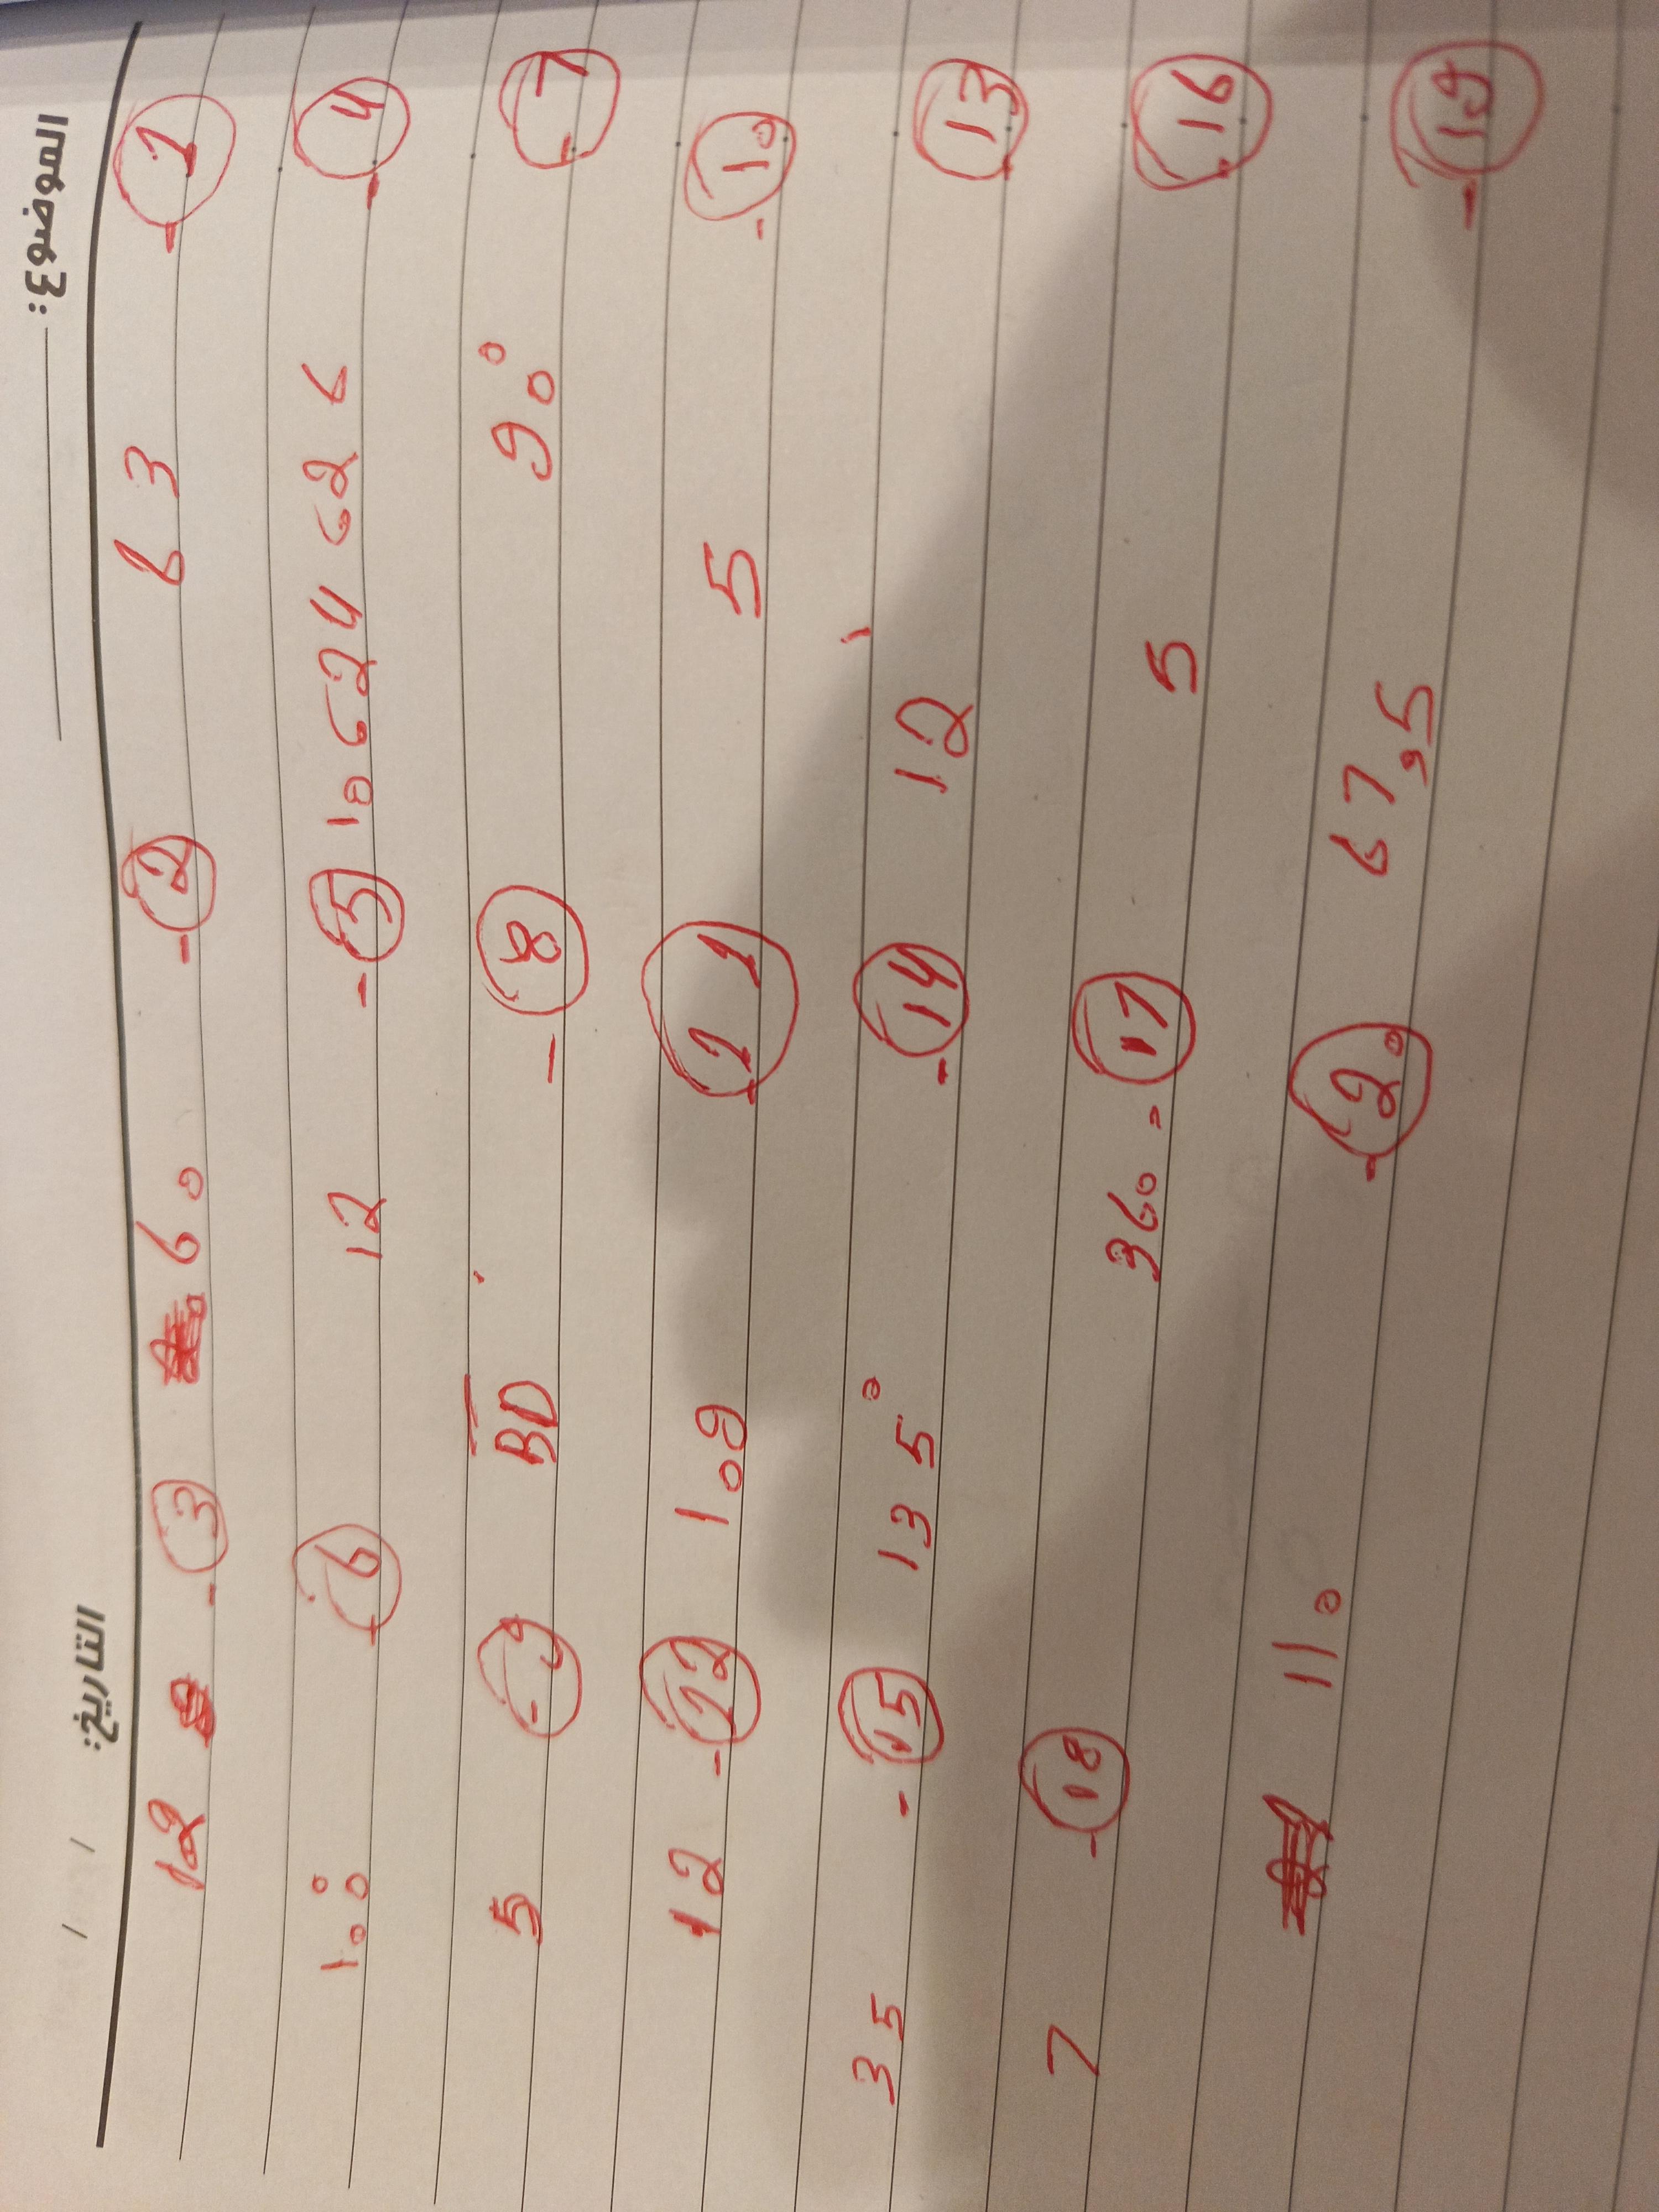 الموضوع: التاريخ: / /
1- 63 2- 60 3- 12
4- 10،24،26 5- 12 6- 100°
7- 90° 8- BD 9- 5
10- 5 11- 108 12- 12
13- 12 14- 135° 15- 35
16- 5 17- 360 = 18- 7
19- 67,5 20- 110